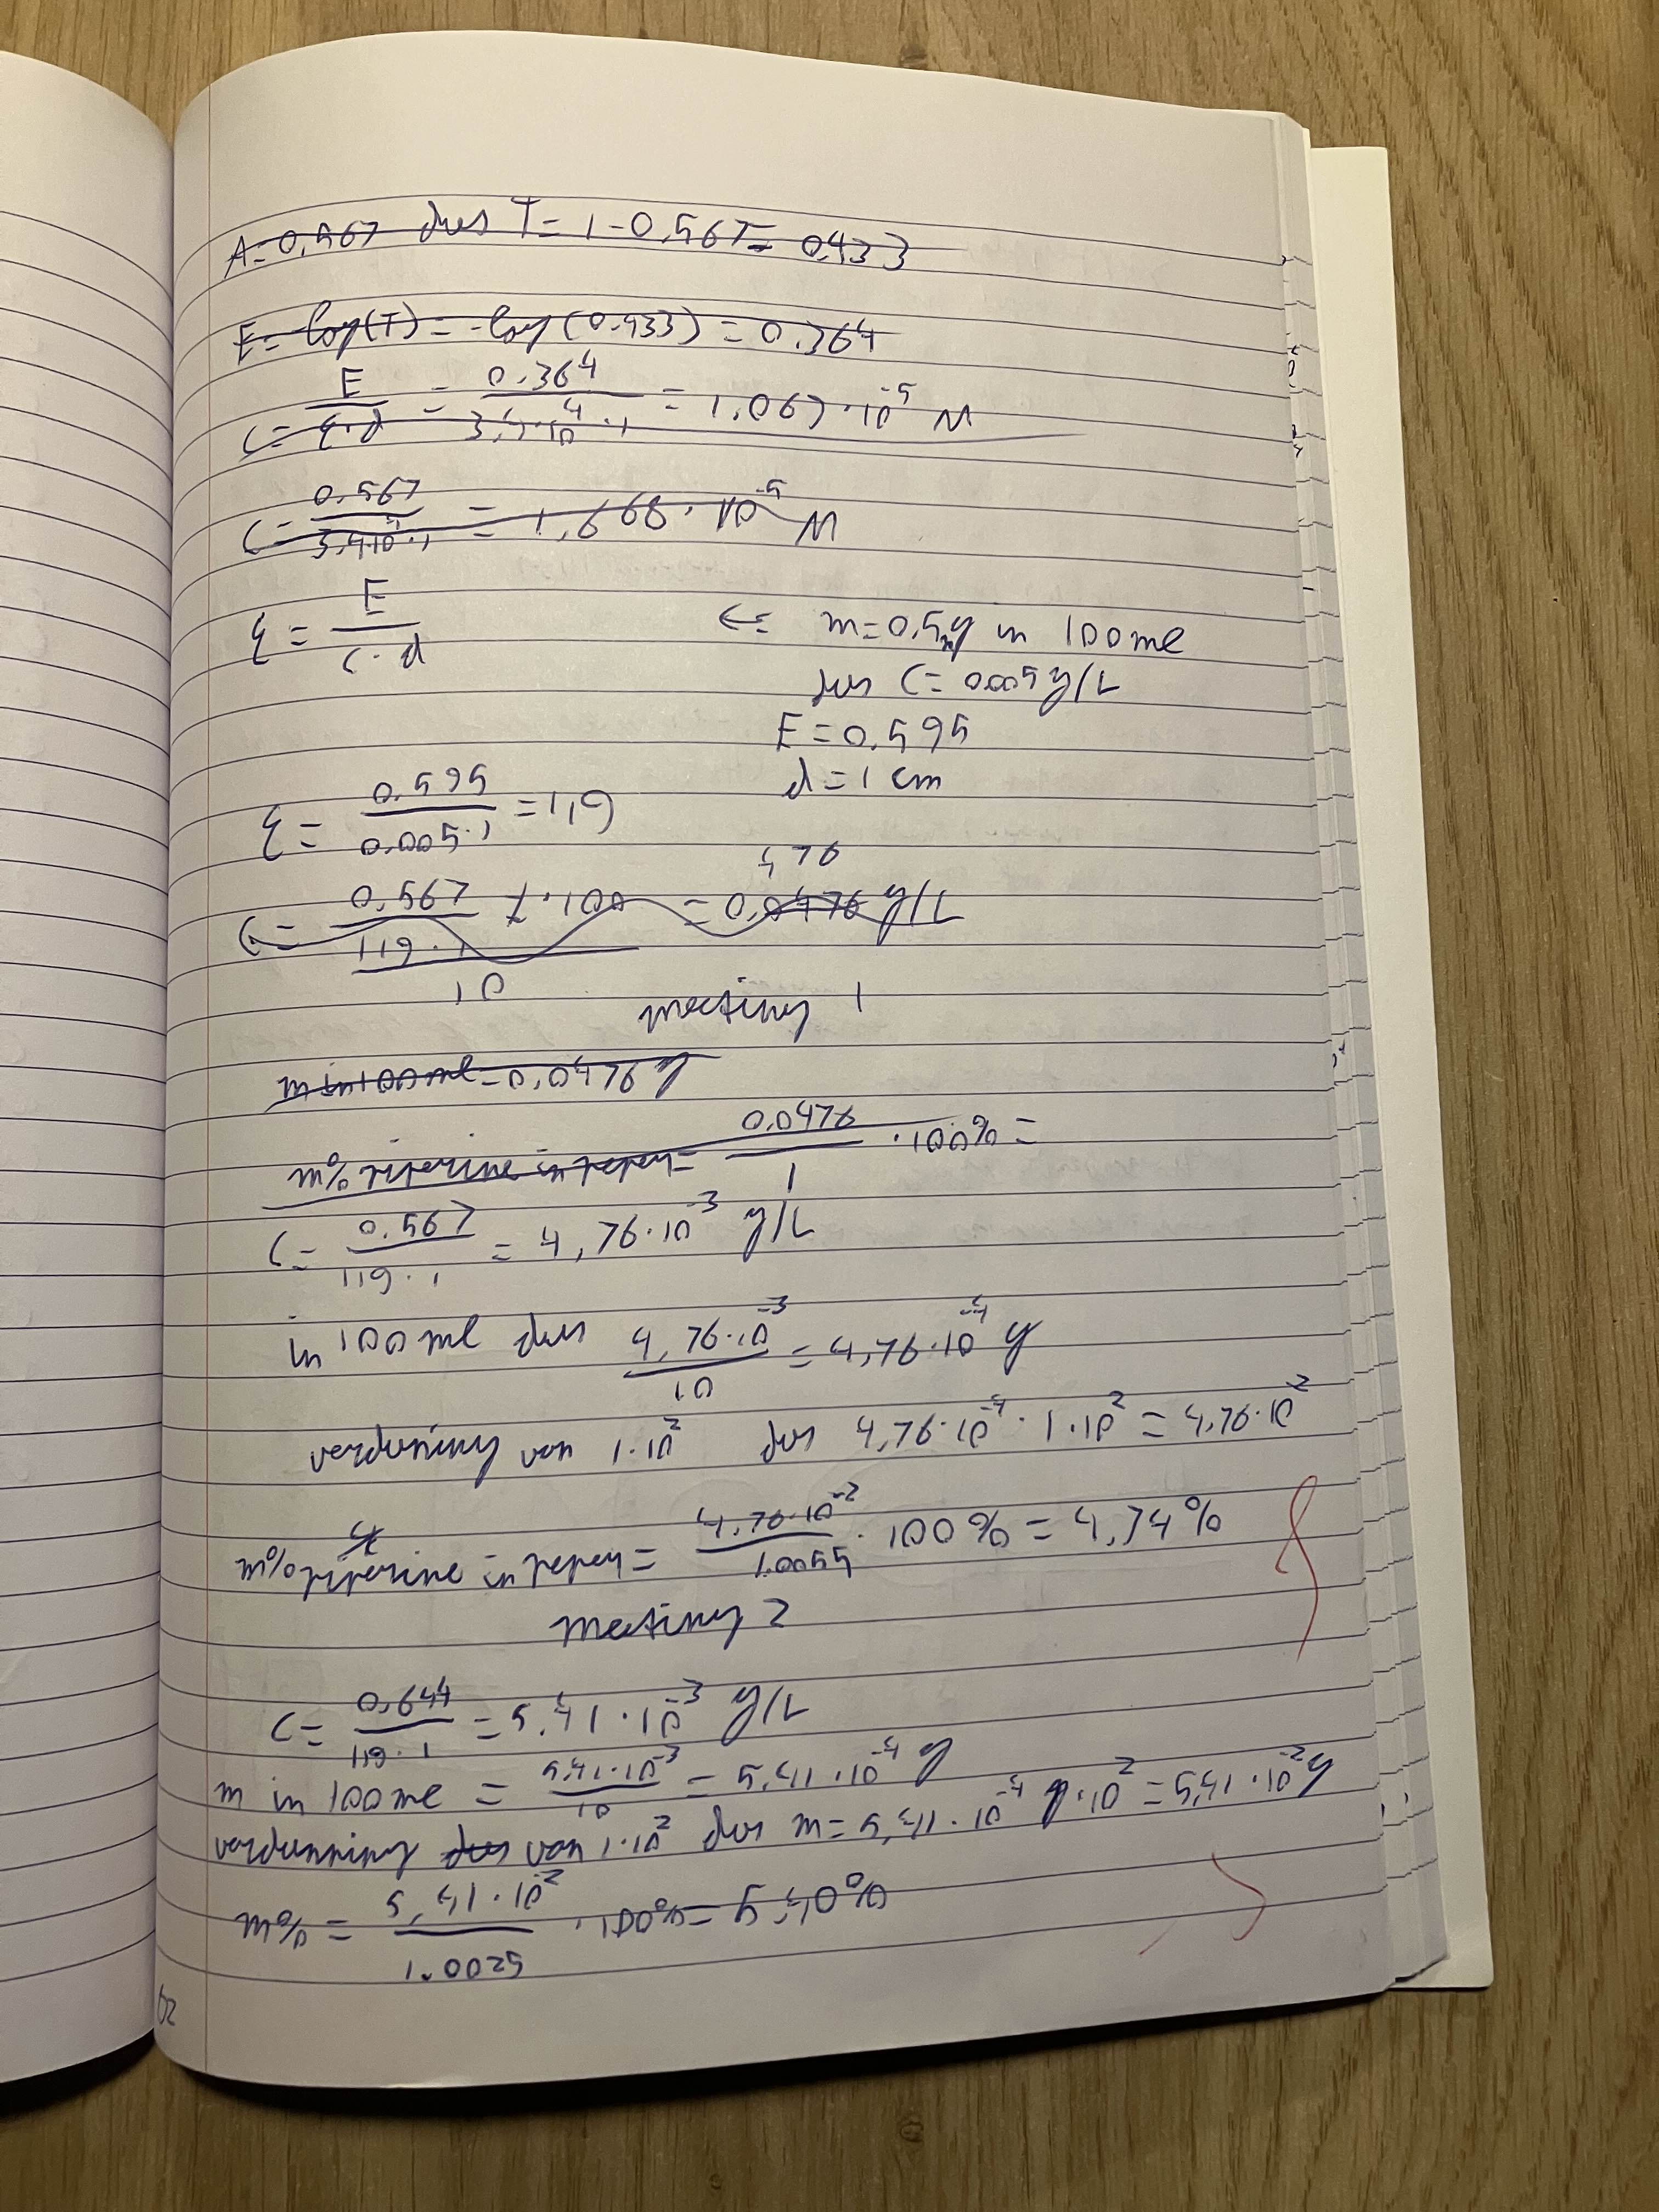 A=0,567 dus T=1-0,567= 0,433
E=-log(T)=-log(0.433)=0.364
C= E/ε·d = 0.364/3,4·10⁴·1 = 1.067·10⁻⁵ M
C= 0.567/3,4·10⁴·1 = 1,668·10⁻⁵ M
ε = E/c·d
m=0,5mg in 100ml
dus C= 0.005g/L
E=0.595
d=1 cm
ε = 0.595/0.005·1 = 119
476
C= 0.567/119·1 ·100 = 0,0476 g/L
10
meeting 1
m in 100 ml = 0,0476 g
m% piperine in peper= 0.0476/1 ·100%=
C= 0.567/119·1 = 4,76·10⁻³ g/L
in 100 ml dus 4,76·10⁻³/10 = 4,76·10⁻⁴ g
verdunning van 1·10² dus 4,76·10⁻⁴·1·10²=4,76·10⁻²
m% piperine in peper= 4,76·10⁻²/1.0055 ·100%=4,74%
Meeting 2
C= 0,644/119·1 = 5,41·10⁻³ g/L
m in 100ml = 5,41·10⁻³/10 = 5,41·10⁻⁴ g
verdunning dus van 1·10² dus m=5,41·10⁻⁴ g·10²=5,41·10⁻² g
m% = 5,41·10⁻²/1.0025 ·100%=5,40%